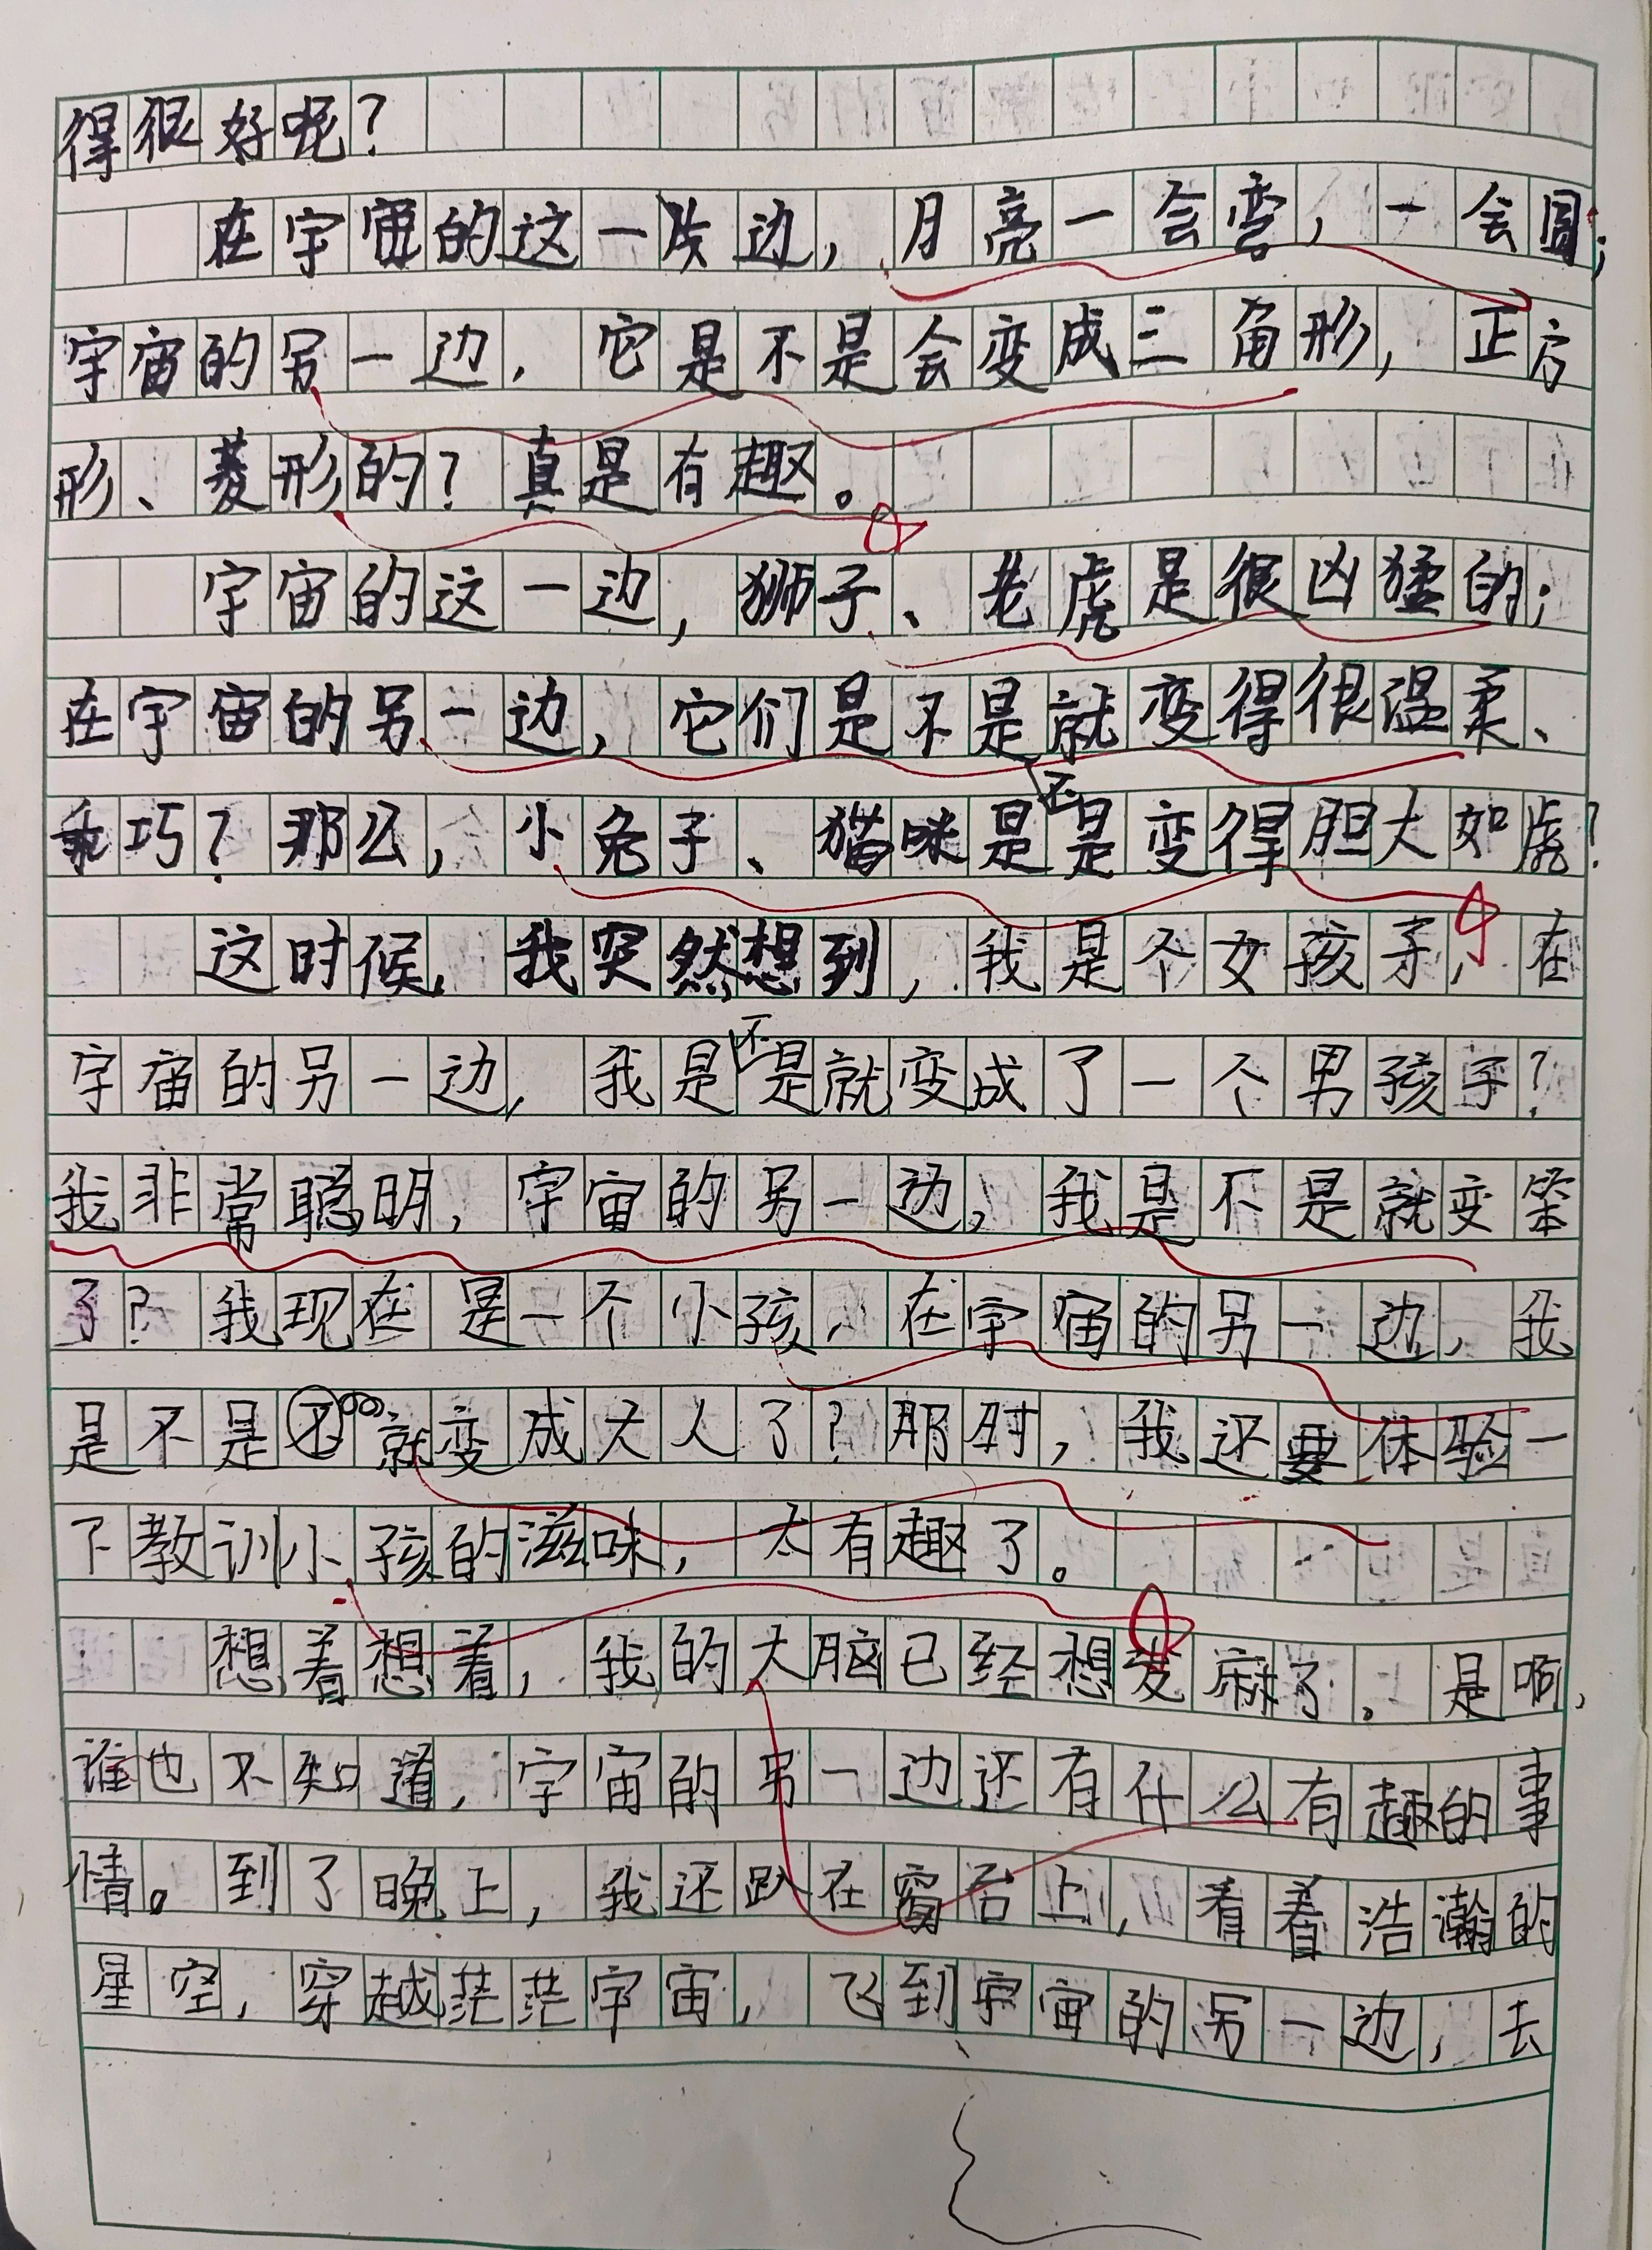 得很好呢?
在宇宙的这一边,月亮一会弯,一会圆;
宇宙的另一边,它是不是会变成三角形,正方
形、菱形的?真是有趣。
宇宙的这一边,狮子、老虎是很凶猛的;
在宇宙的另一边,它们是不是就变得很温柔、
乖巧?那么,小兔子、猫咪是不是变得胆大如虎?
这时候,我突然想到,我是个女孩子,在
宇宙的另一边,我是不是就变成了一个男孩子?
我非常聪明,宇宙的另一边,我是不是就变笨
了?我现在是一个小孩,在宇宙的另一边,我
是不是就变成大人了?那时,我还要体验一
下教训小孩的滋味,太有趣了。
想着想着,我的大脑已经想发麻了。是啊,
谁也不知道,宇宙的另一边还有什么有趣的事
情。到了晚上,我还趴在窗台上,看着浩瀚的
星空,穿越茫茫宇宙,飞到宇宙的另一边,去